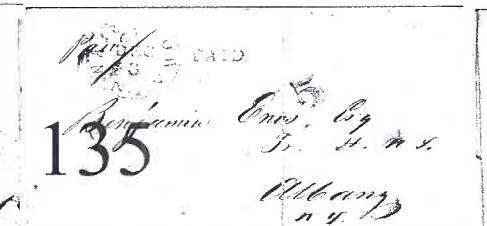 Paid
PAID
5
Benjamin Enos. Esq
135
Tr. St. N Y.
Albany
N Y.